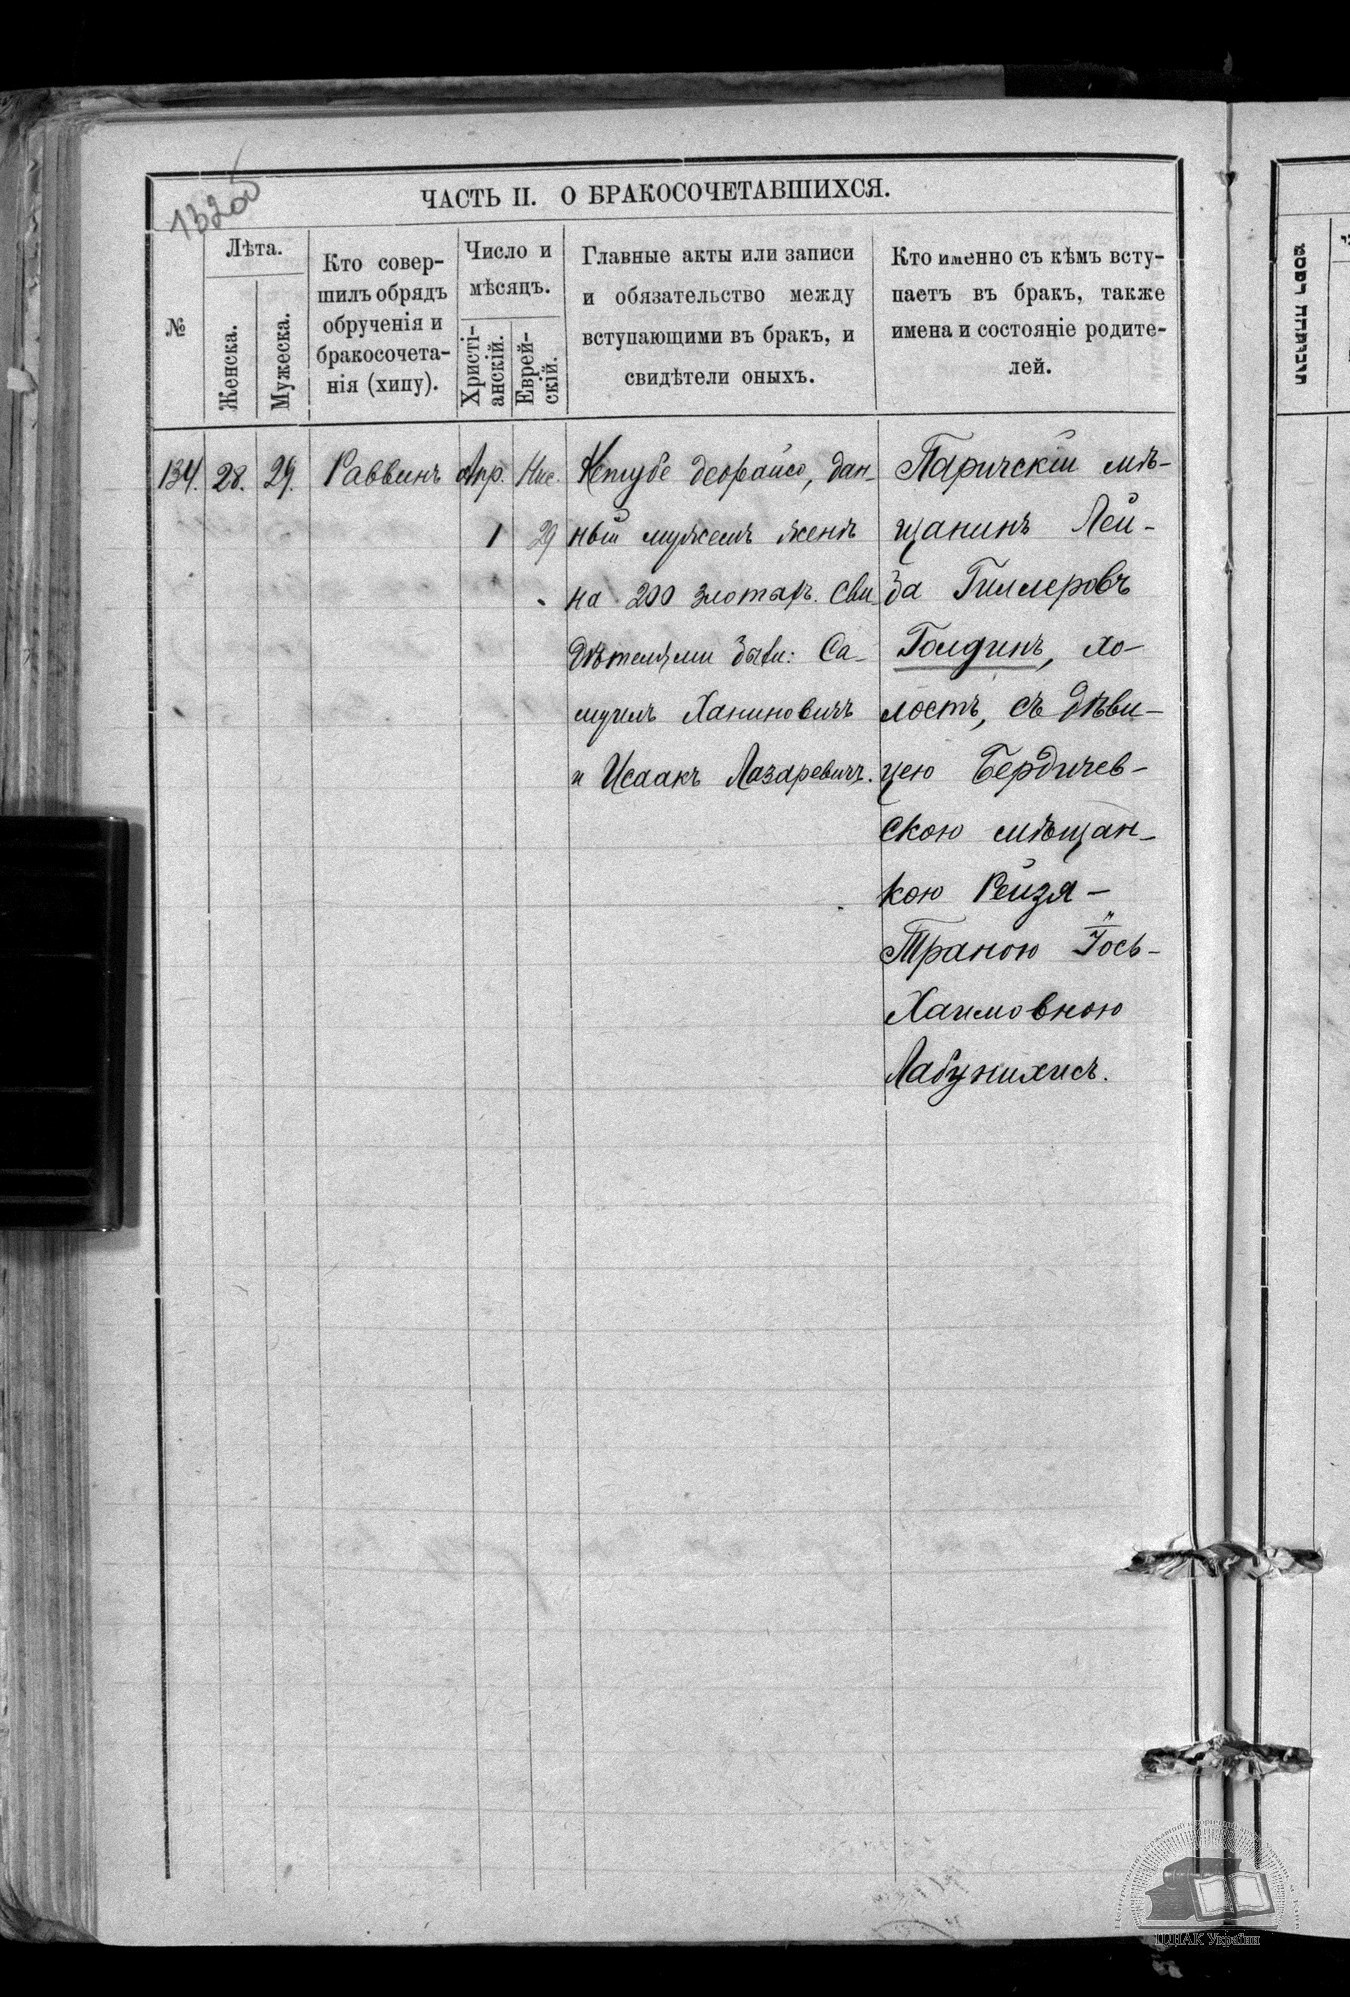 1320
ЧАСТЬ II. О БРАКОСОЧЕТАВШИХСЯ.
№
Лѣта.
Женска.
Мужеска.
Кто совер-
шилъ обрядъ
обрученія и
бракосочета-
нія (хипу).
Число и
мѣсяцъ.
Христі-
анскій.
Еврей-
скій.
Главные акты или записи
и обязательство между
вступающими въ бракъ, и
свидѣтели оныхъ.
Кто именно съ кѣмъ всту-
паетъ въ бракъ, также
имена и состояніе родите-
лей.
134. 28. 29. Раввинъ Апр. Нис.
1 29
Ктубе деорайсо, дан-
ный мужемъ женѣ
на 200 злотахъ. Сви
дѣтелями были: Са-
муилъ Ханиновичъ
и Исаакъ Лазаревичъ.
Паричскій мѣ-
щанинъ Лей-
за Гиллеровъ
Голдинъ, хо-
лостъ, съ дѣви-
цею Бердичев-
скою мѣщан-
кою Рейзя-
Траною Іось-
Хаимовною
Лабунихисъ.
ЦДІАК України